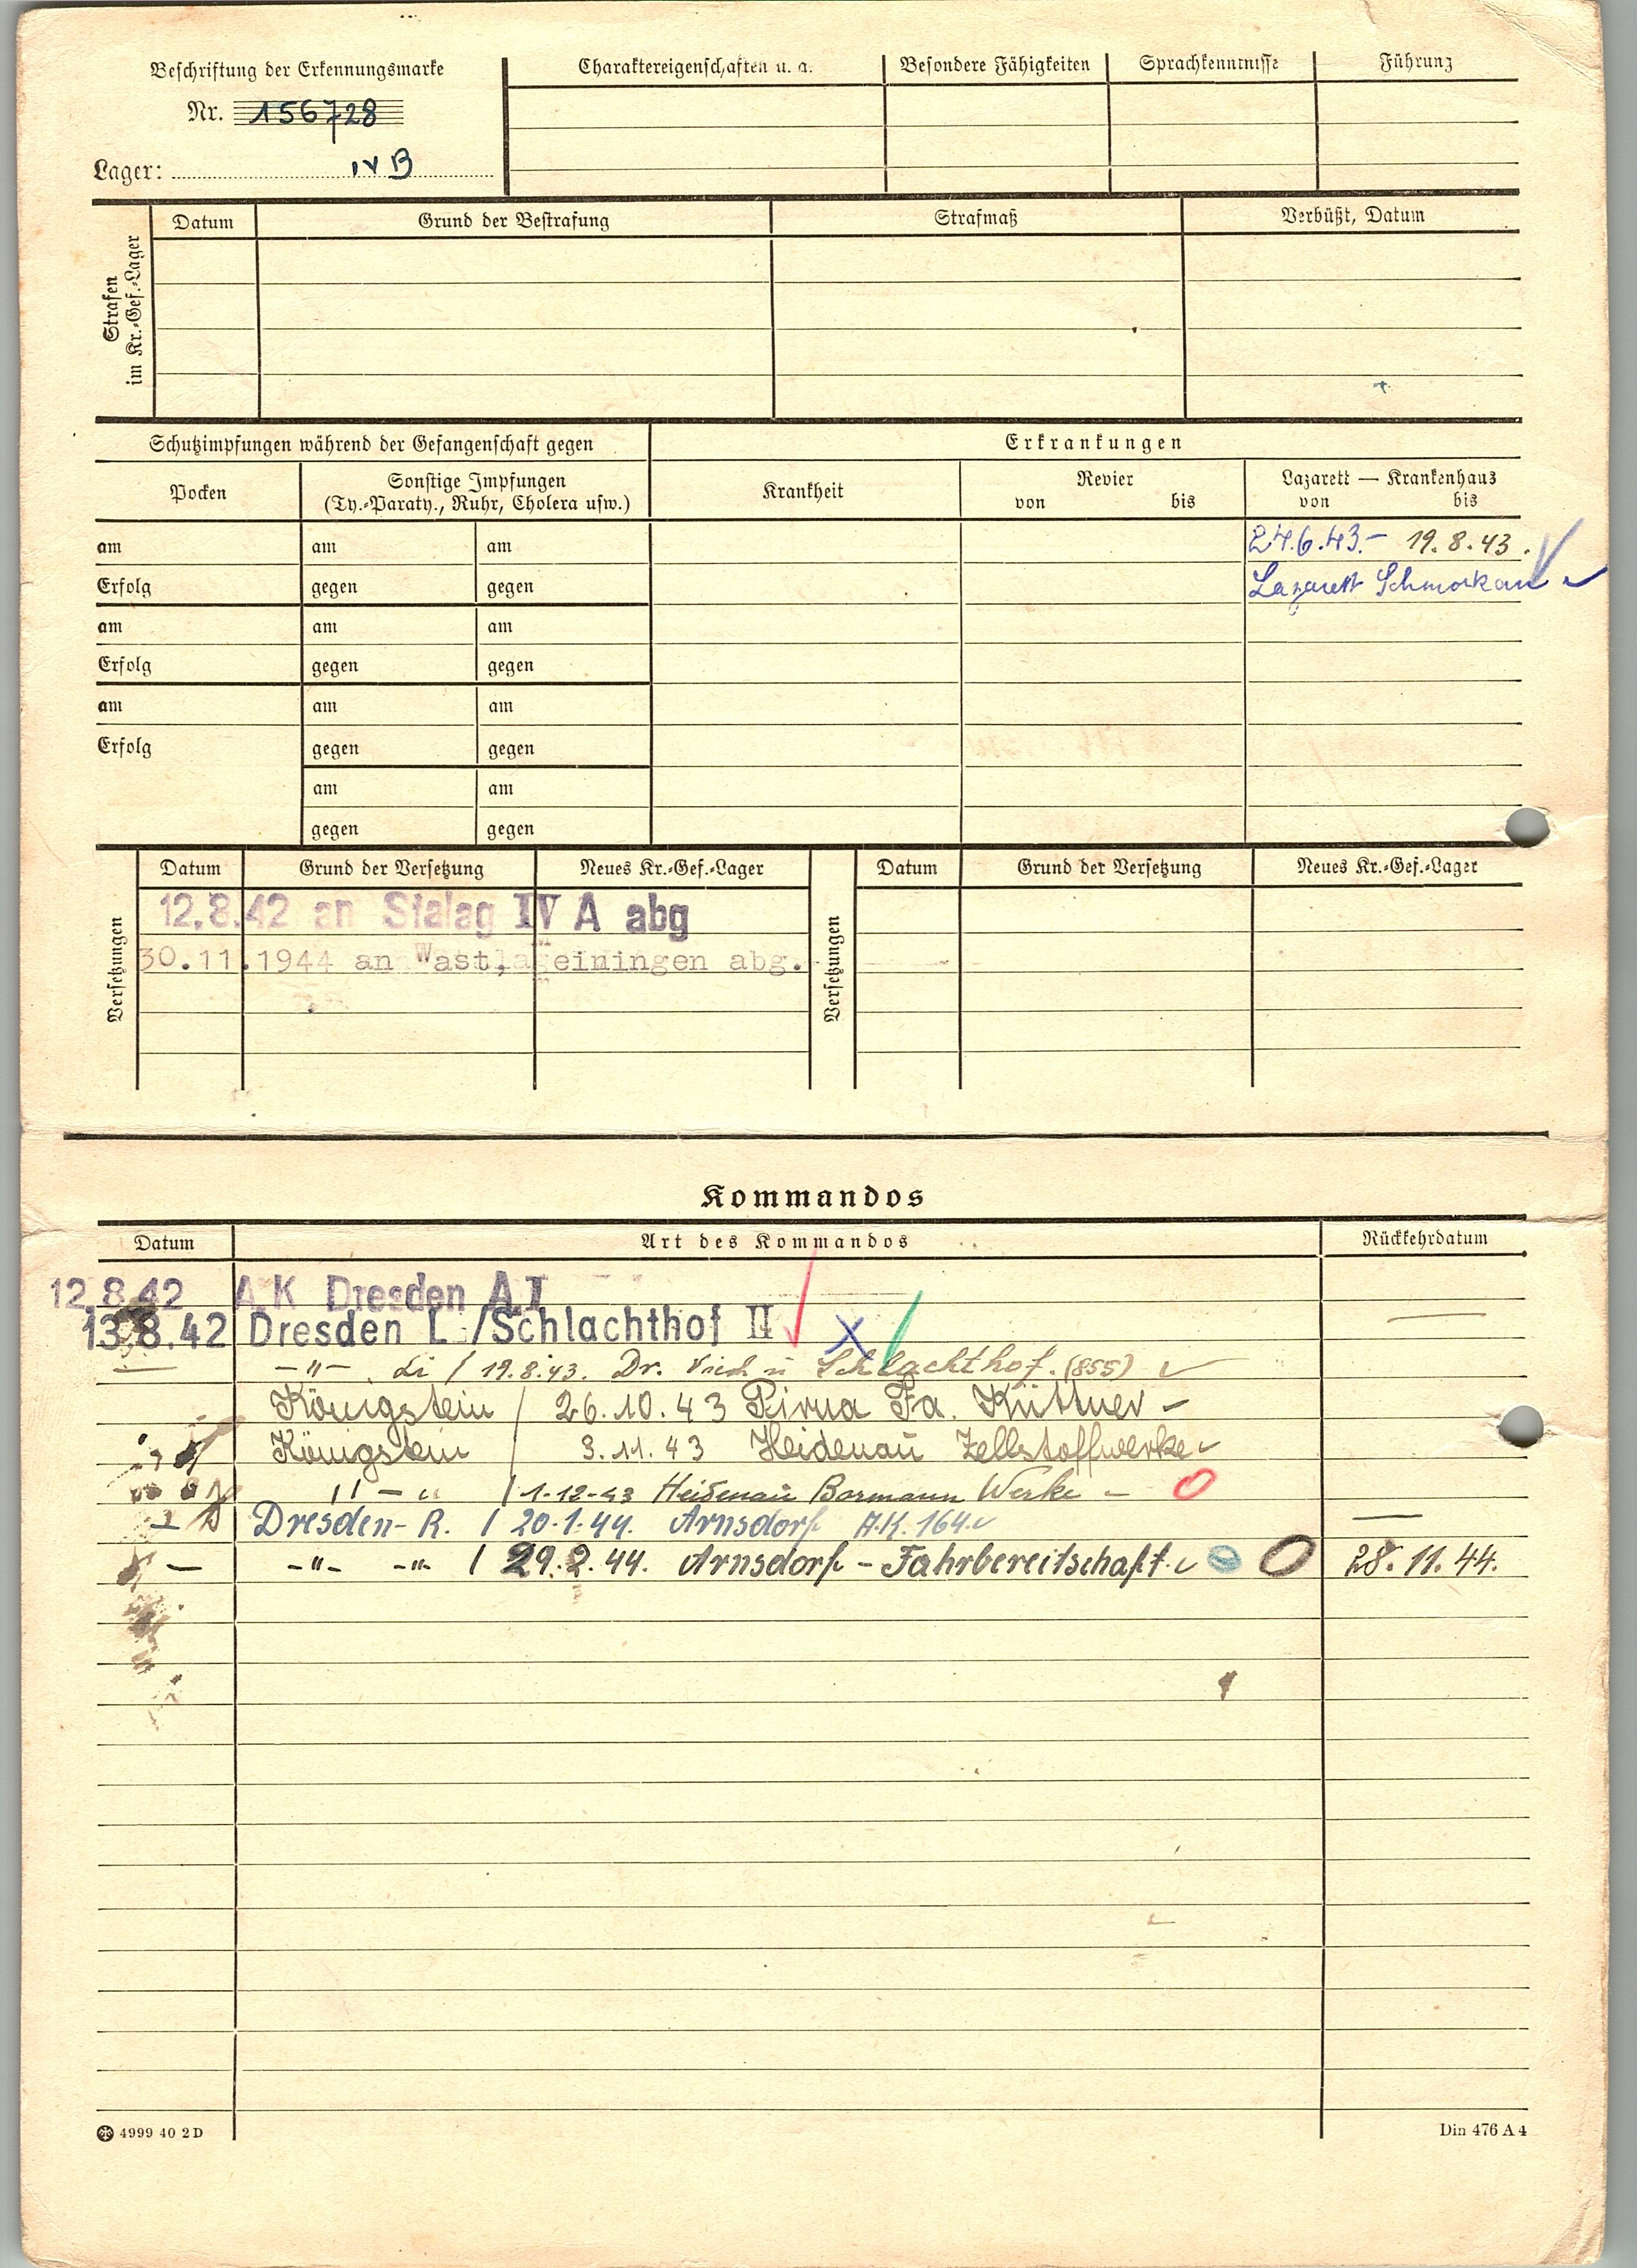 Beschriftung der Erkennungsmarke
Nr. 156728
Lager: IV B
Charaktereigenschaften u. a. Besondere Fähigkeiten Sprachkenntnisse Führung
Strafen im Kr.-Gef.-Lager
Datum Grund der Bestrafung Strafmaß Verbüßt, Datum
Schutzimpfungen während der Gefangenschaft gegen Erkrankungen
Pocken Sonstige Impfungen Krankheit Revier Lazarett — Krankenhaus
(Ty.-Paraty., Ruhr, Cholera usw.) von bis von bis
am am am 24.6.43.- 19.8.43.
Erfolg gegen gegen Lazarett Schmorkau
am am am
Erfolg gegen gegen
am am am
Erfolg gegen gegen
am am
gegen gegen
Versetzungen Datum Grund der Versetzung Neues Kr.-Gef.-Lager Versetzungen Datum Grund der Versetzung Neues Kr.-Gef.-Lager
12.8.42 an Stalag IV A abg
30.11.1944 an Wast, einingen abg.
Kommandos
Datum Art des Kommandos Rückkehrdatum
12.8.42 A.K Dresden A I
13.8.42 Dresden L /Schlachthof II
-"- / 19.8.43. Dr. Schlachthof. (855)
Königstein / 26.10.43 Pirna Fa. Küttner -
Königstein / 3.11.43 Heidenau Zellstoffwerke
" - " / 1-12-43 Heidenau Bormann Werke -
Dresden- R. / 20.1.44. Arnsdorf A.K. 164.
— -"- -"- / 29.2.44. Arnsdorf - Fahrbereitschaft. 28.11.44.
4999 40 2 D Din 476 A 4